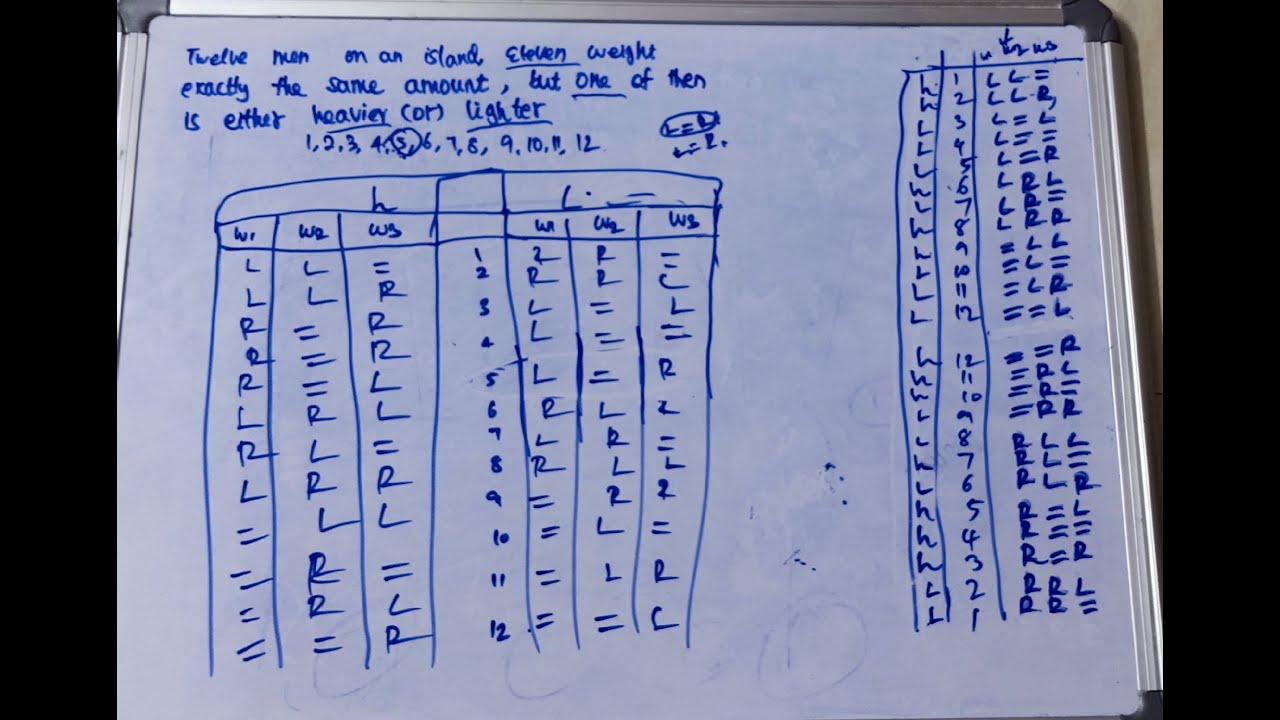 Twelve men on an island, Eleven weight
exactly the same amount, but one of then
is either heavier (or) lighter
1, 2, 3, 4, 5, 6, 7, 8, 9, 10, 11, 12
L
W1 W2 W3 W1 W2 W3
L L = 1 R R =
L L R 2 R R L
R = R 3 L = L
R = R 4 L = =
R = L 5 L = R
L R L 6 R L R
R L = 7 L R =
L R R 8 R L L
= L L 9 = R R
= R = 10 = L =
= R L 11 = L R
= = R 12 = = L
W2 W3
1 L L =
2 L L R
L 3 L = L
L 4 L = =
5 L = R
6 L R L
7 L R =
8 L R R
L 9 = L L
L 10 = L =
L 11 = L R
L 12 = = L
12 = = R
11 = R L
10 = R =
L 9 = R R
L 8 R L L
L 7 R L =
L 6 R L R
5 R = L
4 R = =
3 R = R
L 2 R R L
L 1 R R =